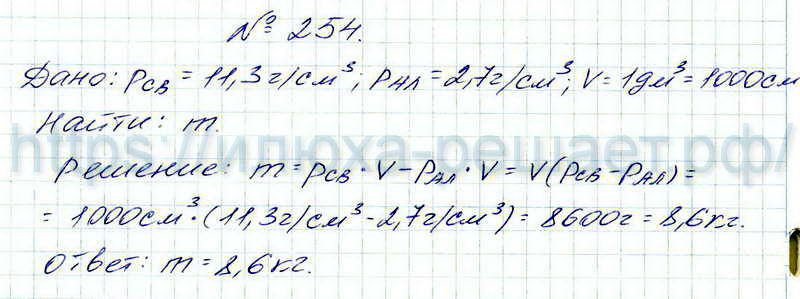 № 254.
Дано: ρсв = 11,3 г/см³; ρал = 2,7 г/см³; V = 1 дм³ = 1000 см
Найти: m.
https://илюха-решает.рф/
Решение: m = ρсв · V − ρал · V = V(ρсв − ρал) =
= 1000 см³ · (11,3 г/см³ − 2,7 г/см³) = 8600 г = 8,6 кг.
Ответ: m = 8,6 кг.